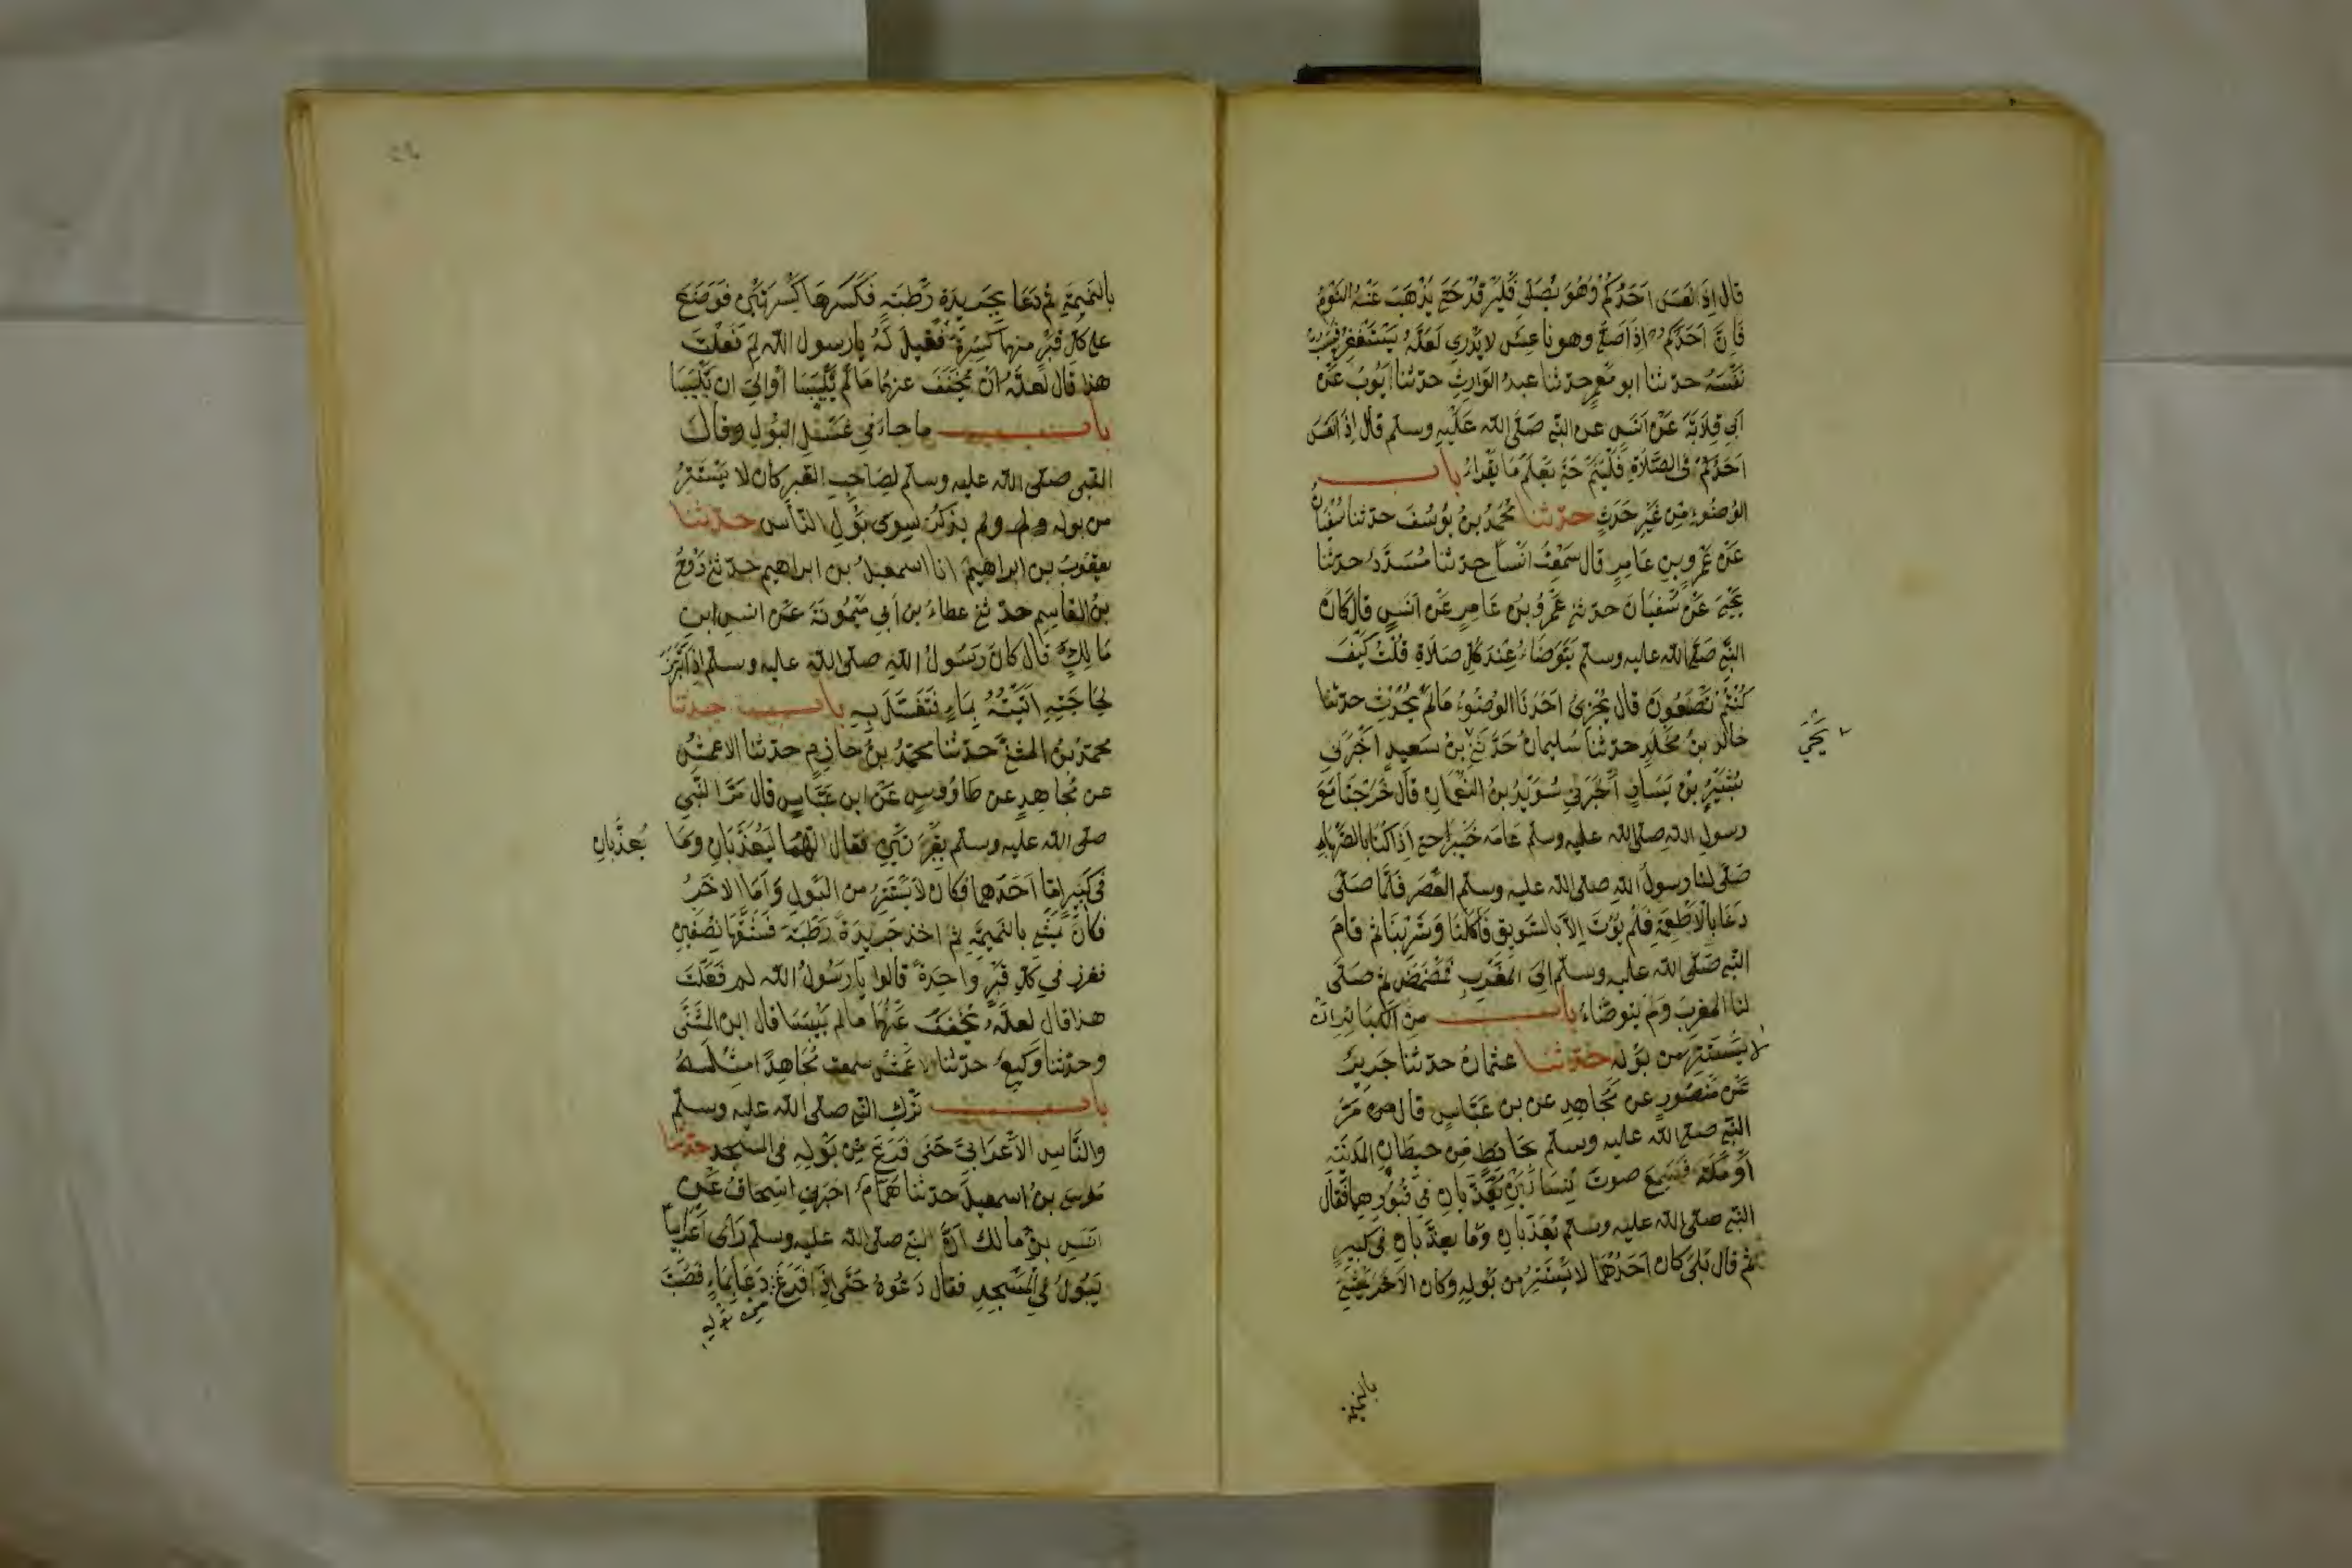 قال اذا نعس احدكم وهو يصلي فليرقد حتى يذهب عنه النوم
فان احدكم اذا صلى وهو ناعس لا يدري لعله يستغفر فيسب
نفسه حدثنا ابو معمر حدثنا عبد الوارث حدثنا ايوب عن
ابي قلابة عن انس عن النبي صلى الله عليه وسلم قال اذا نعس
احدكم في الصلاة فلينم حتى يعلم ما يقراء باب
الوضوء من غير حدث حدثنا محمد بن يوسف حدثنا سفيان
عن عمرو بن عامر قال سمعت انسا حدثنا مسدد حدثنا
يحيى عن سفيان حدثني عمرو بن عامر عن انس قال كان
النبي صلى الله عليه وسلم يتوضاء عند كل صلاة قلت كيف
كنتم تصنعون قال يجزئ احدنا الوضوء ما لم يحدث حدثنا
خالد بن مخلد حدثنا سليمان حدثني بن سعيد اخبرني
يحيى
بشير بن يسار اخبرني سويد بن النعمان قال خرجنا مع
رسول الله صلى الله عليه وسلم عامه خيبر حتى اذا كنا بالصهباء
صلى لنا رسول الله صلى الله عليه وسلم العصر فلما صلى
دعا بالاطعمة فلم يؤت الا بالسويق فاكلنا وشربنا ثم قام
النبي صلى الله عليه وسلم الى المغرب فمضمض ثم صلى
لنا المغرب ولم يتوضاء باب من الكبائر ان
لا يستتر من بوله حدثنا عثمان حدثنا جرير
عن منصور عن مجاهد عن بن عباس قال مر
النبي صلى الله عليه وسلم بحائط من حيطان المدينة
او مكة فسمع صوت انسانين يعذبان في قبورهما فقال
النبي صلى الله عليه وسلم يعذبان وما يعذبان في كبير
ثم قال بلى كان احدهما لا يستتر من بوله وكان الاخر يمشي
بالنميمة
بالنميمة ثم دعا بجريدة رطبة فكسرها كسرتين فوضع
على كل قبر منهما كسرة فقيل له يا رسول الله لم فعلت
هذا قال لعله ان يخفف عنهما ما لم ييبسا او الى ان ييبسا
باب ما جاء في غسل البول وقال
النبي صلى الله عليه وسلم لصاحب القبر كان لا يستتر
من بوله ولم يذكر سوى بول الناس حدثنا
يعقوب بن ابراهيم انا اسمعيل بن ابراهيم حدثني روح
بن القاسم حدثني عطاء بن ابي ميمونة عن انس ابن
مالك قال كان رسول الله صلى الله عليه وسلم اذا تبرز
لحاجته اتيته بماء فتغسل به باب حدثنا
محمد بن المثنى حدثنا محمد بن خازم حدثنا الاعمش
عن مجاهد عن طاوس عن ابن عباس قال مر النبي
صلى الله عليه وسلم بقبرين فقال انهما ليعذبان وما
يعذبان
في كبير اما احدهما فكان لا يستتر من البول واما الاخر
فكان يمشي بالنميمة ثم اخذ جريدة رطبة فشقها نصفين
فغرز في كل قبر واحدة قالوا يا رسول الله لم فعلت
هذا قال لعله يخفف عنهما ما لم ييبسا قال ابن المثنى
وحدثنا وكيع حدثنا الاعمش سمعت مجاهدا مثله
باب ترك النبي صلى الله عليه وسلم
والناس الاعرابي حتى فرغ من بوله في المسجد حدثنا
موسى بن اسمعيل حدثنا همام اخبرني اسحاق عن
انس بن مالك ان النبي صلى الله عليه وسلم راى اعرابيا
يبول في المسجد فقال دعوه حتى اذا فرغ دعا بماء فصب
من بوله